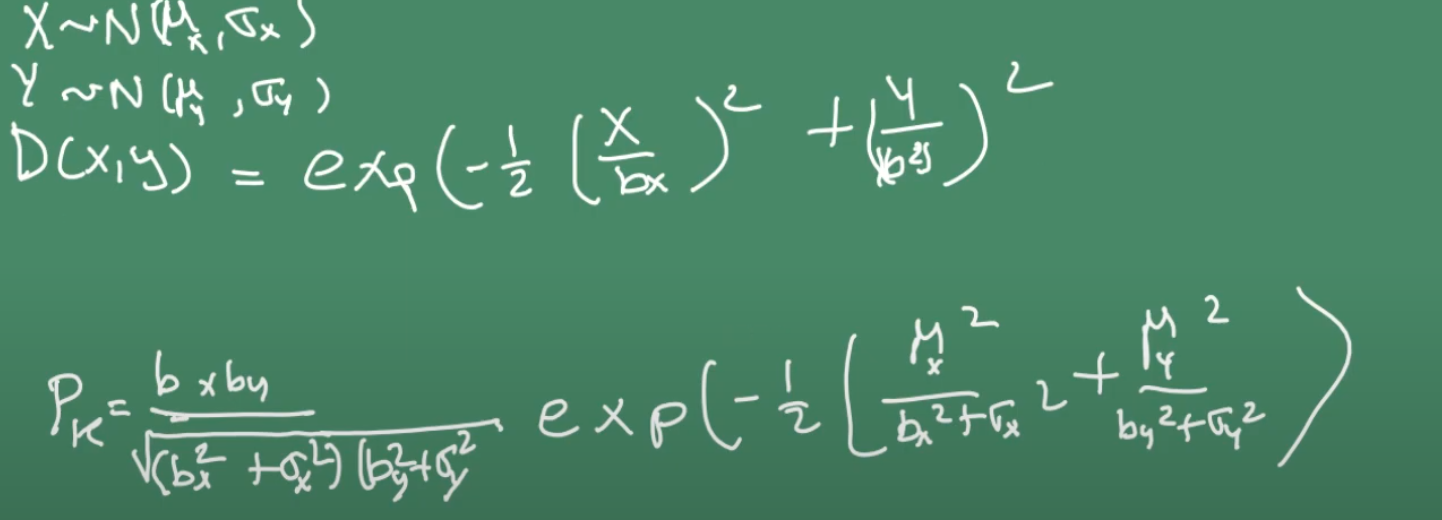 X ~ N(μx, σx)
Y ~ N(μy, σy)
D(x,y) = exp(-1/2 (x/bx)² + (y/by))²
PK = bxby/√((bx² + σx²)(by² + σy²) exp(-1/2 [μx²/(bx² + σx²) + μy²/(by² + σy²))